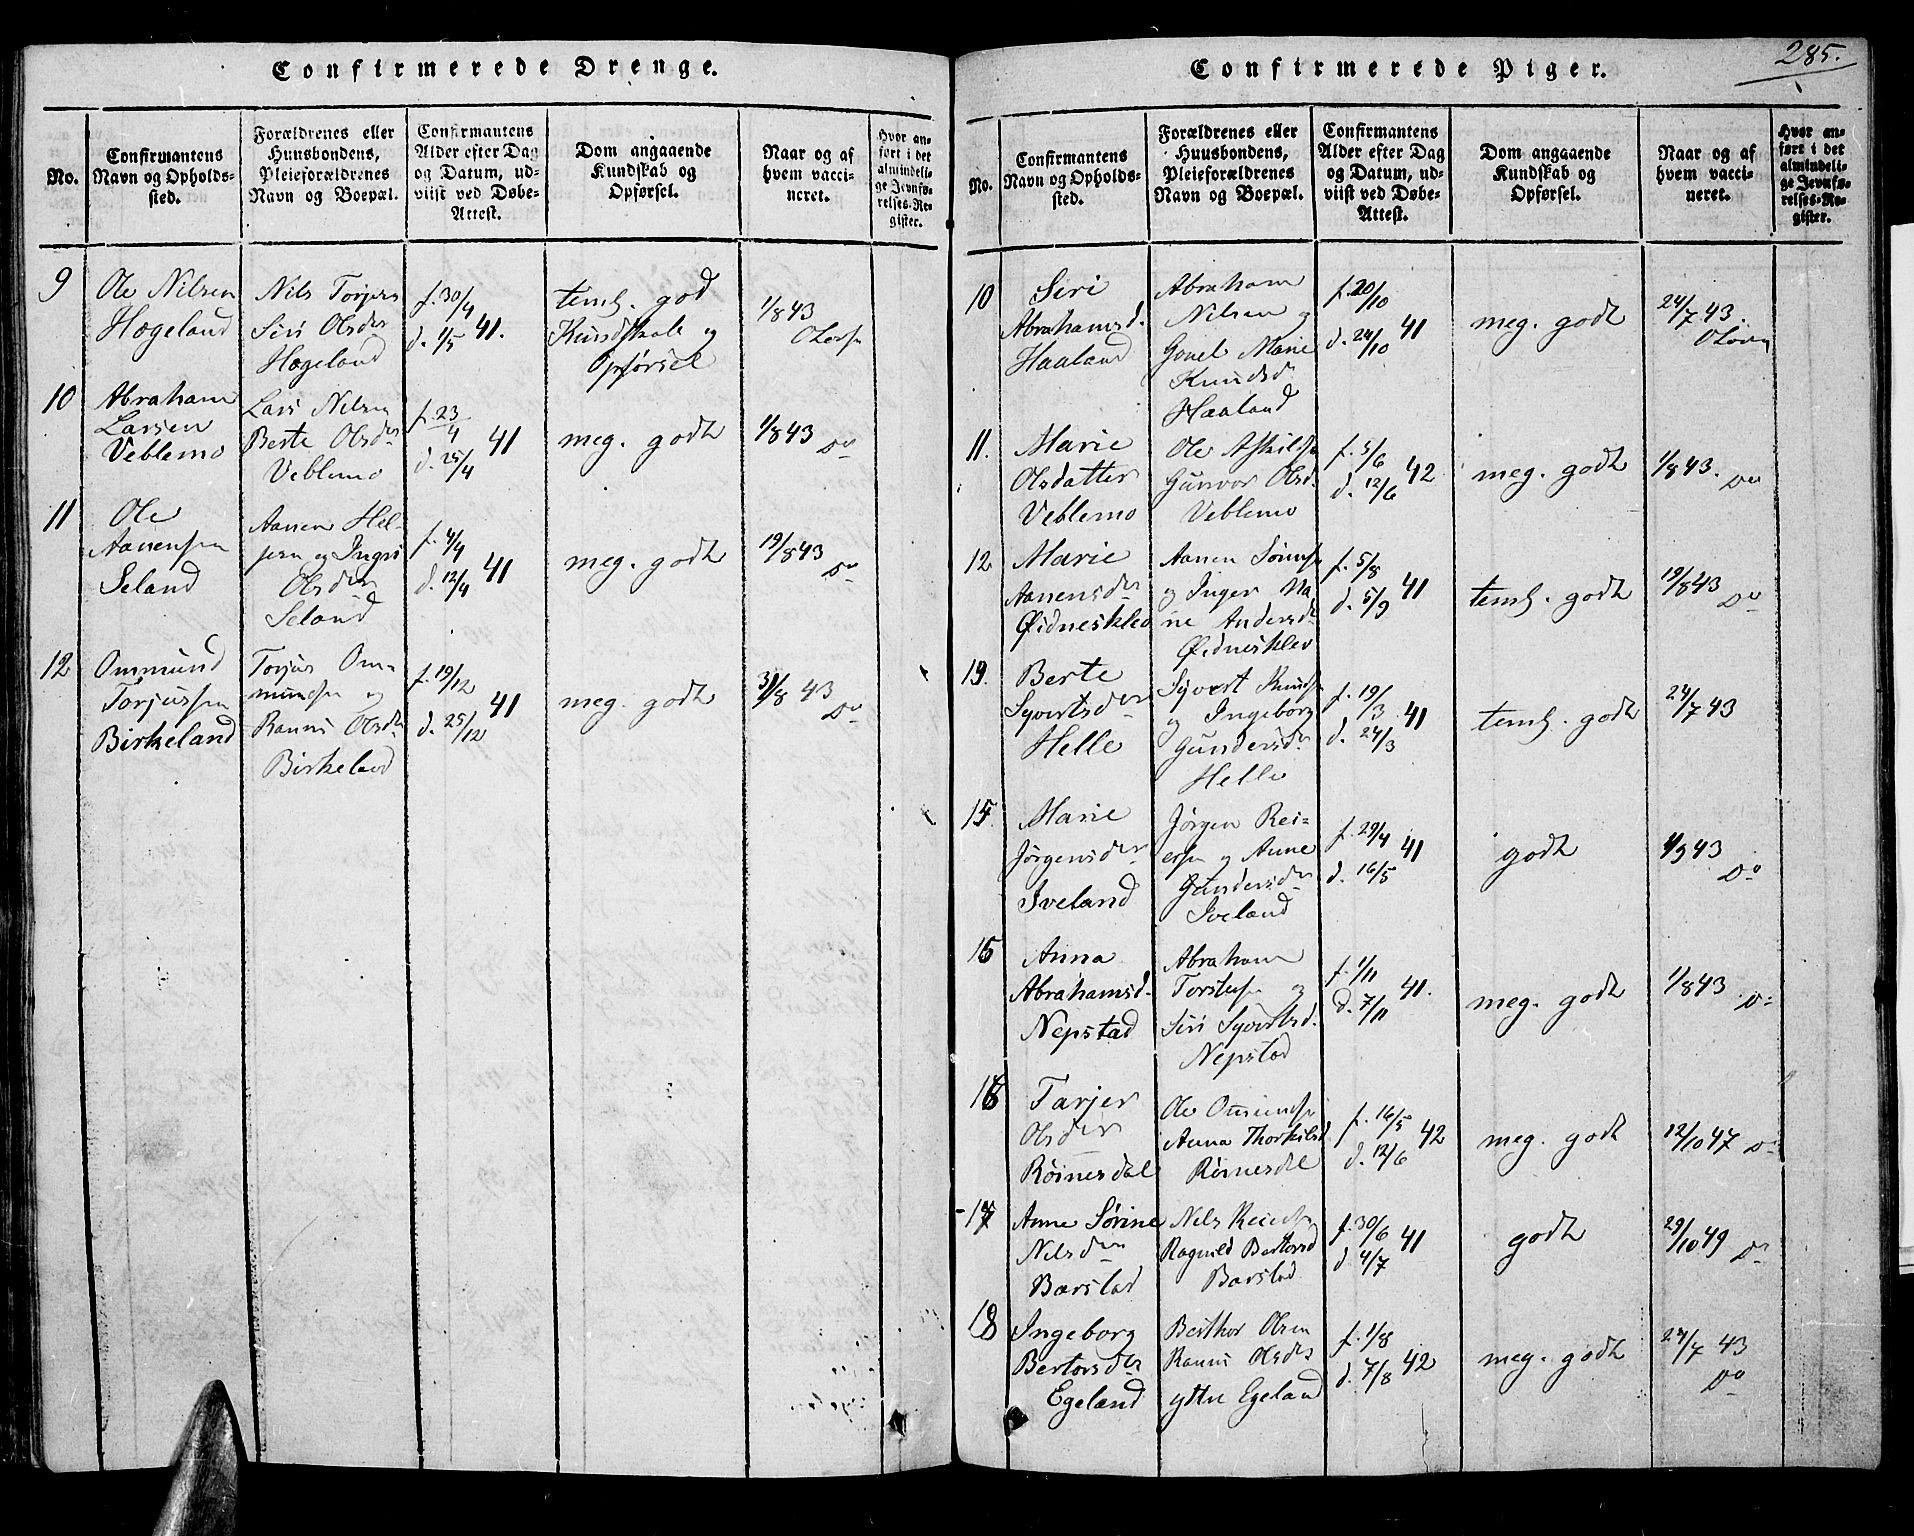 285.
Confirmerede Drenge.
No.
Confirmantens Navn og Opholdssted.
Forældrenes eller Huusbondens, Pleieforældrenes Navn og Boepæl.
Confirmantens Alder efter Dag og Datum, udviist ved Døbe-Attest.
Dom angaaende Kundskab og Opførsel.
Naar og af hvem vaccineret.
Hvor anført i det almindelige Jevnførelses-Register.
9
Ole Nilsen
Hægeland
Nils Torjers
Siri Olsdr
Hægeland
f. 30/4
d. 1/5 41.
teml. god
Kundskab og
Opførsel
1/8 43
10
Abraham
Larsen
Veblemo
Lars Nilsen
Berte Olsdr
Veblemo
f. 23/4
d. 25/4 41
meg. godt
1/8 43
Do
11
Ole
Aanensen
Seland
Aanen Hel-
jesen og Ingri
Olsdr
Seland
f. 4/4
d. 12/4 41
meg. godt
19/8 43
Do
12
Ommund
Torjussen
Birkeland
Torjus Om-
mundsen og
Ranni Olsdr
Birkeland
f. 19/12
d. 25/12 41
meg. godt
31/8 43
Do
Confirmerede Piger.
No.
Confirmantens Navn og Opholdssted.
Forældrenes eller Huusbondens, Pleieforældrenes Navn og Boepæl.
Confirmantens Alder efter Dag og Datum, udviist ved Døbe-Attest.
Dom angaaende Kundskab og Opførsel.
Naar og af hvem vaccineret.
Hvor anført i det almindelige Jevnførelses-Register.
10
Siri
Abrahamsd.
Haaland
Abraham
Nilsen og
Gonel Marie
Knudsdr
Haaland
f. 20/10
d. 24/10 41
meg. godt
24/7 43.
11.
Marie
Olsdatter
Veblemo
Ole Askilds
Gunvor Olsd.
Veblemo
f. 5/6
d. 12/6 42
meg. godt
1/8 43.
Do
12
Marie
Aanensdr
Øidnesklev
Aanen Sørens
og Inger Ma
rie Andersdr
Øidnesklev
f. 5/8
d. 5/9 41
teml. godt
19/8 43
Do
13.
Berte
Syvertsdr
Helle
Syvert Knuds
og Ingeborg
Gundersdr
Helle
f. 19/3
d. 24/3 41
teml. godt
24/7 43
Marie
Jørgensdr
Iveland
Jørgen Rei-
ersen og Anne
Gundersdr
Iveland
f. 29/4
d. 16/5 41
godt
43
Do
Anna
Abrahamsd.
Nepstad
Abraham
Torsteins og
Siri Syvertsd.
Nepstad
f. 1/11
d. 7/11 41.
meg. godt
1/8 43
Do
16
Tarjer
Olsdr
Røinesdal
Ole
Anna Thorkilsd
Røinesdal
f. 16/5
d. 12/6 42
meg. godt
12/10 47
Do
17
Anne Sørine
Nilsdr
Barstad
Nils Reiers
Ragnild Bertorsd
Barstad
f. 30/6
d 4/7 41
godt
29/10 49
Do
18
Ingeborg
Bertorsdr
Egeland
Berthor Olsen
Ranni Olsdr
yttre Egeland
f. 1/8
d. 7/8 42
meg. godt
24/7 43
Do